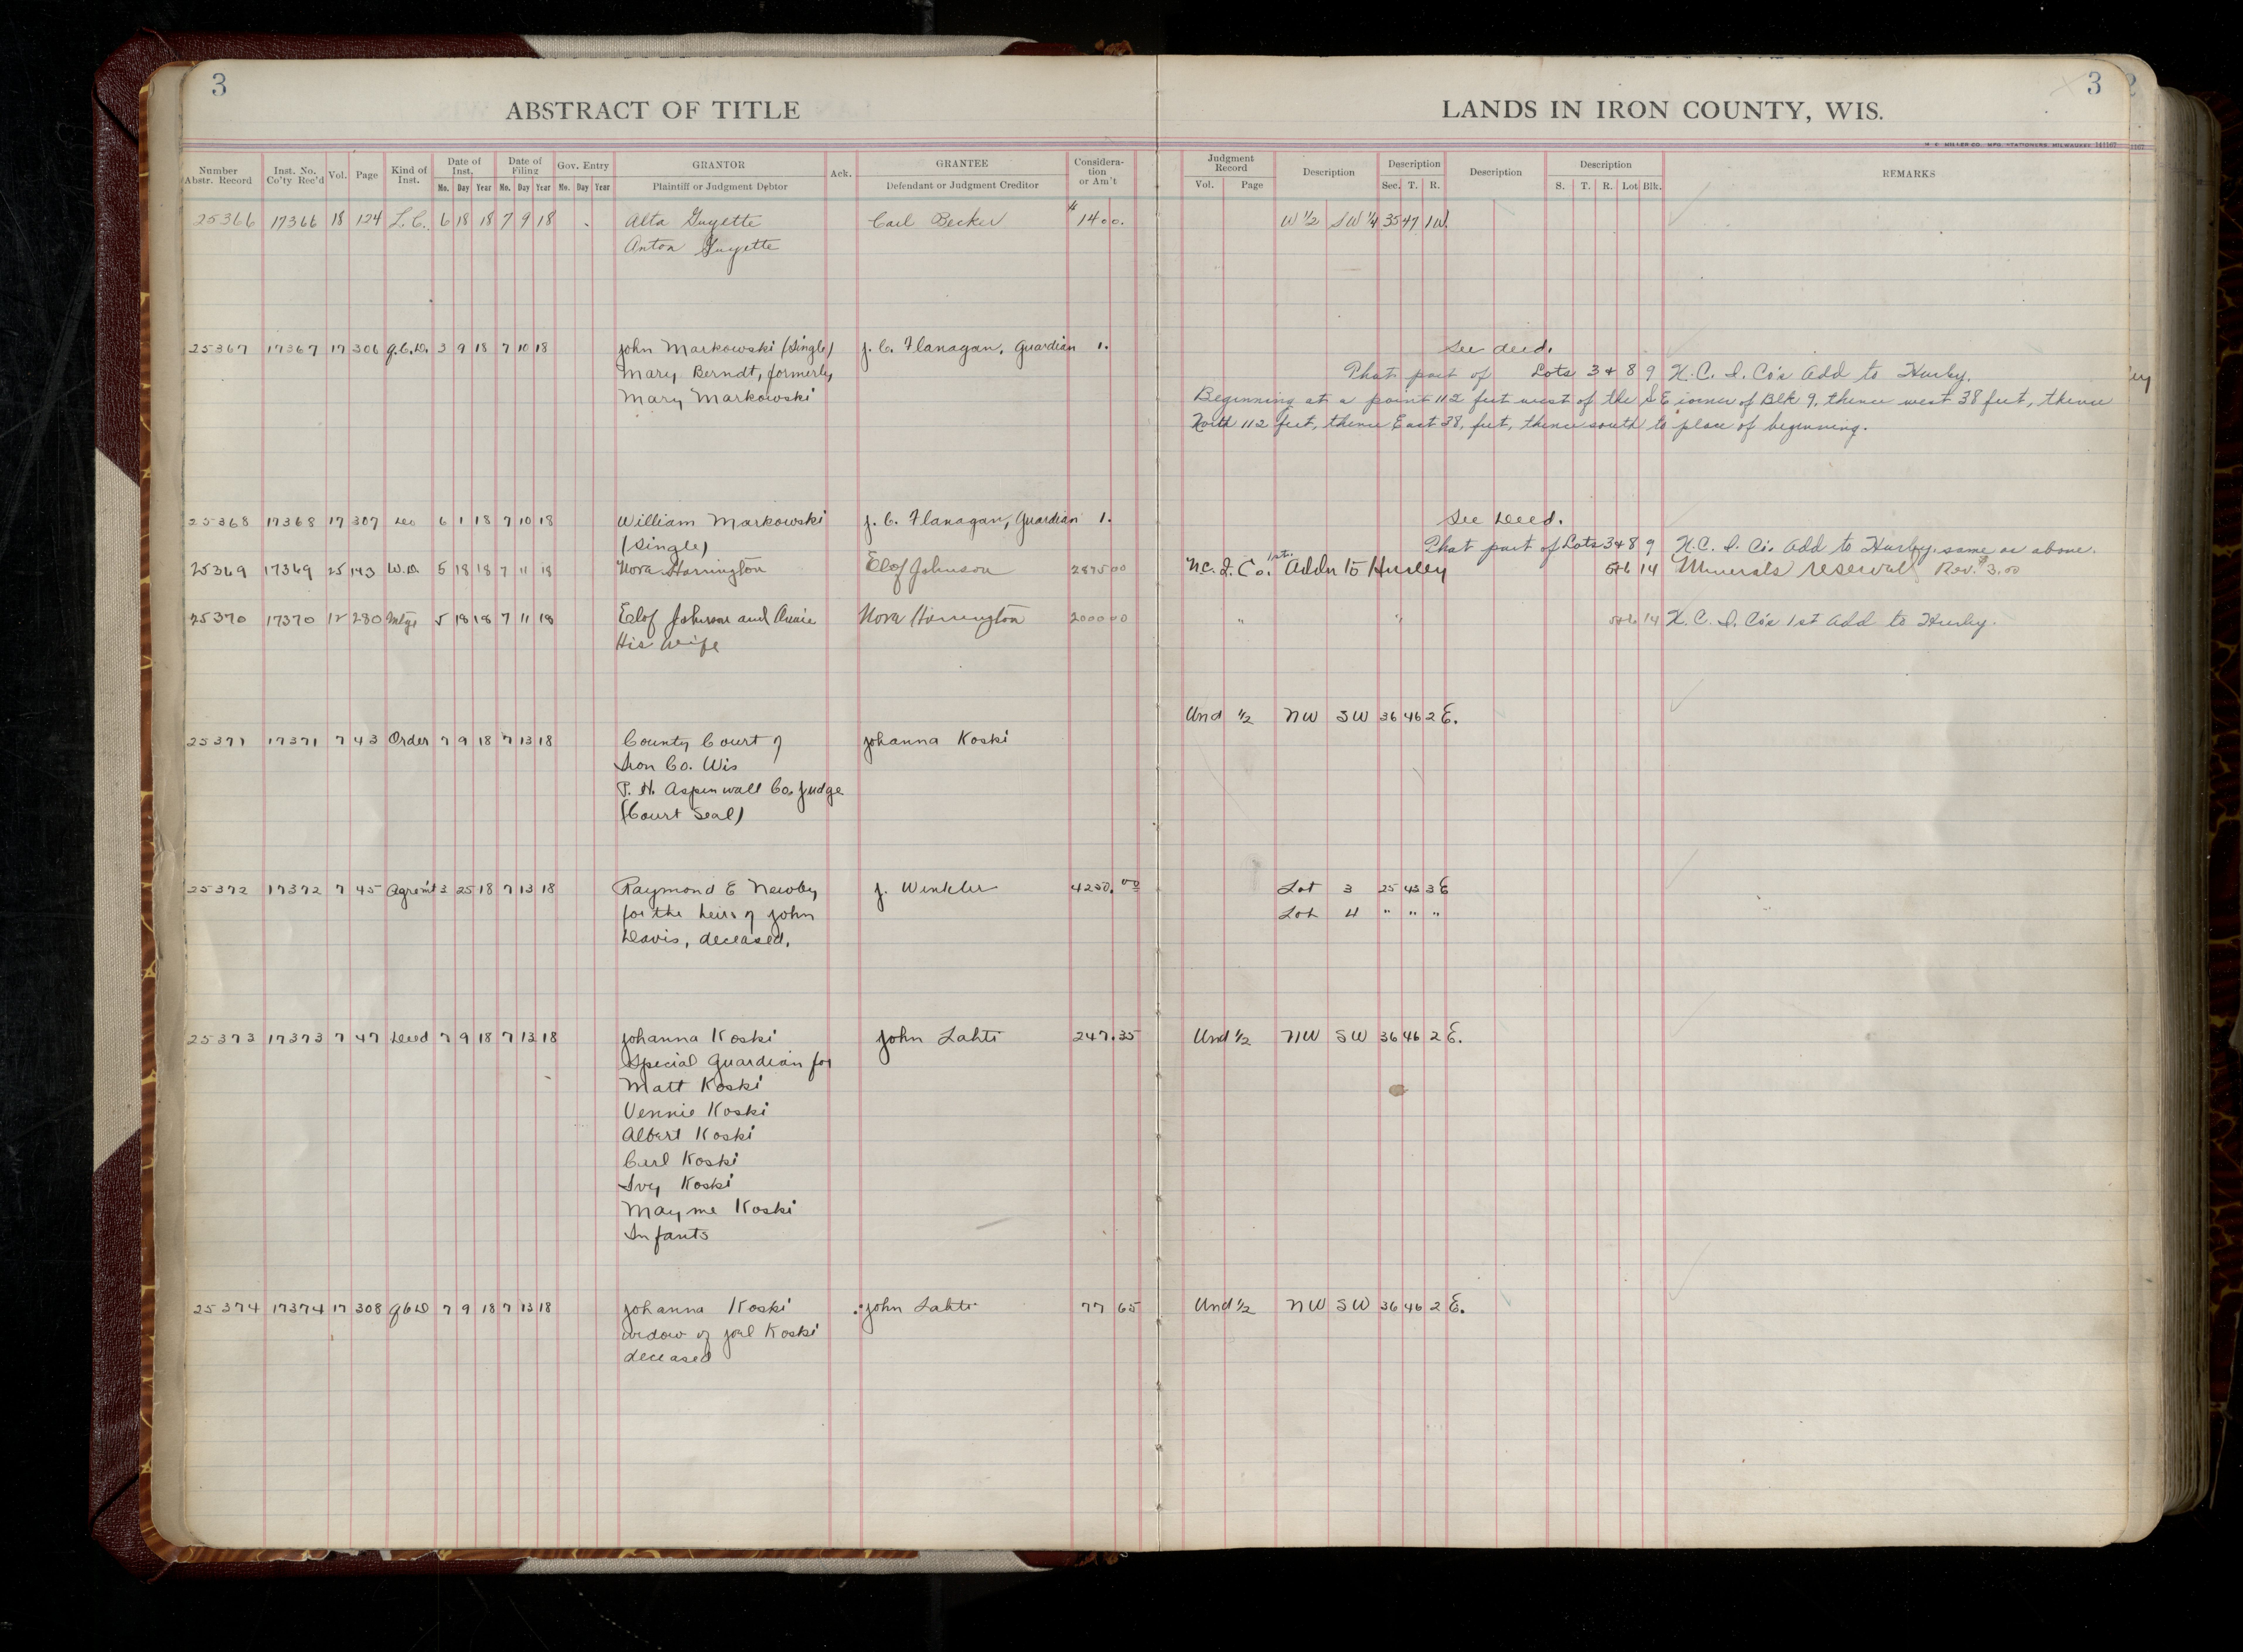 3 3
ABSTRACT OF TITLE LANDS IN IRON COUNTY, WIS.
Number Abstr. Record Inst. No. Co'ty Rec'd Vol. Page Kind of Inst. Date of Inst. Mo. Day Year Date of Filing Mo. Day Year Gov. Entry Mo. Day Year GRANTOR Plaintiff or Judgment Debtor Ack. GRANTEE Defendant or Judgment Creditor Considera-tion or Am't Judgment Record Vol. Page Description Description Sec. T. R. Description Description S. T. R. Lot Blk. REMARKS
25366 17366 18 124 L.C. 6 18 18 7 9 18 Alta Guyette Carl Becker $1400. W 1/2 SW 1/4 35 47 1W.
Anton Guyette
25367 17367 17 306 Q.C.D. 3 9 18 7 10 18 John Markowski (Single) J. C. Flanagan, Guardian 1. See deed.
Mary Berndt, formerly That part of Lots 3 & 8 9 N.C.I. Co's Add to Hurley.
Mary Markowski Beginning at a point 112 feet west of the SE corner of Blk 9, thence west 38 feet, thence
North 112 feet, thence East 38, feet, thence south to place of beginning.
25368 17368 17 307 Deed 6 1 18 7 10 18 William Markowski J. C. Flanagan, Guardian 1. See Deed.
(Single) That part of Lots 3&8 9 N.C.I. Co. Add to Hurley. same as above.
25369 17369 25 143 W.D. 5 18 18 7 11 18 Nora Harrington Elof Johnson 2875 00 N.C.I. Co. 1st. Addn to Hurley 5&6 14 Minerals reserved Rev. $3.00
25370 17370 12 280 Mtge 5 18 18 7 11 18 Elof Johnson and Annie Nora Harrington 2000 00 " " 5&6 14 N.C.I. Co's 1st Add to Hurley.
His wife
Und 1/2 NW SW 36 46 2 E.
25371 17371 7 43 Order 7 9 18 7 13 18 County Court of Johanna Koski
Iron Co. Wis
P. H. Aspinwall Co. Judge
(Court Seal)
25372 17372 7 45 Agrem't 3 25 18 7 13 18 Raymond E Newby J. Winkler 4250.00 Lot 3 25 43 3 E
for the heirs of John Lot 4 " " "
Davis, deceased.
25373 17373 7 47 Deed 7 9 18 7 13 18 Johanna Koski John Lahti 247.35 Und 1/2 NW SW 36 46 2 E.
Special Guardian for
Matt Koski
Vennie Koski
Albert Koski
Carl Koski
Ivey Koski
Mayme Koski
Infants
25374 17374 17 308 QCD 7 9 18 7 13 18 Johanna Koski John Lahti 77 65 Und 1/2 NW SW 36 46 2 E.
widow of Joel Koski
deceased